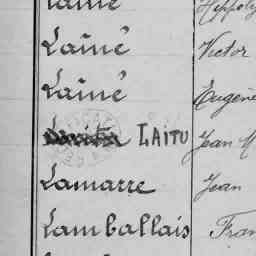 Lainé Hippoly
Laîné Victor
Laîné Eugène
LAITU Jean M
Lamarre Jean
Lamballais Fran